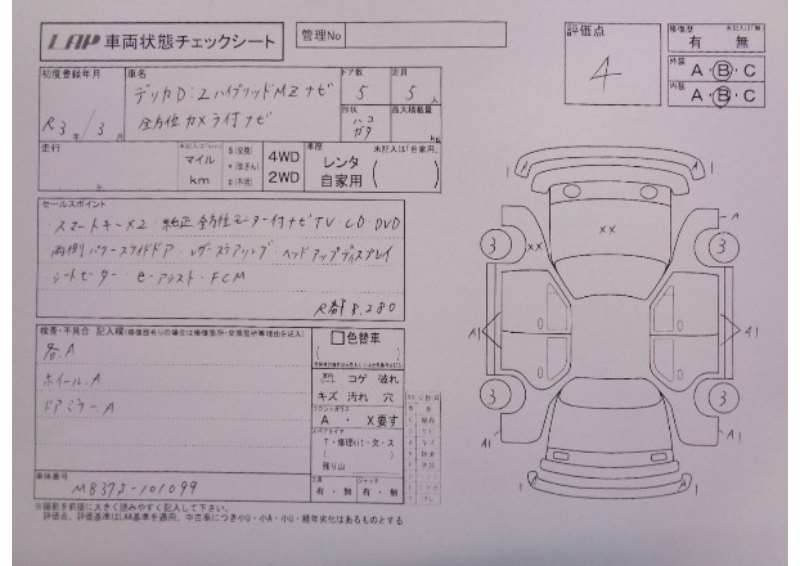 LAP 車両状態チェックシート
管理No
評価点
4
修復歴 未記入は「無」
有 無
外装 A・B・C
内装 A・B・C
初度登録年月
R3年/3月
車名
デリカD:2ハイブリッドMZナビ
全方位カメラ付ナビ
ドア数
5
定員
5人
形状
ハコ
ガタ
最大積載量
kg
走行
マイル
km
$(交換)
*(改ざん)
#(不明)
4WD
2WD
車歴 未記入は「自家用」
レンタ
自家用
セールスポイント
スマートキー×2 純正全方位モニター付ナビTV・CD・DVD
両側パワースライドドア・レザーステアリング・ヘッドアップディスプレイ
シートヒーター・e-アシスト・FCM
R都 8.280
検査・不具合 記入欄
各.A
ホイール.A
ドアミラーA
色替車
コゲ 破れ
キズ 汚れ 穴
フロントガラス
A・ X要す
スペアタイヤ
T・修理kit・欠・ス
残り山
有・無
ジャッキ
有・無
車体番号
MB37S-101099
※撮影を前提に大きく読みやすく記入して下さい。
評価点、評価基準はLAA基準を適用。中古車につき小Q・小A・小U・経年劣化はあるものとする
A
A
××
××
A
3
3
A1
A1
3
3
A1
A1
A
A